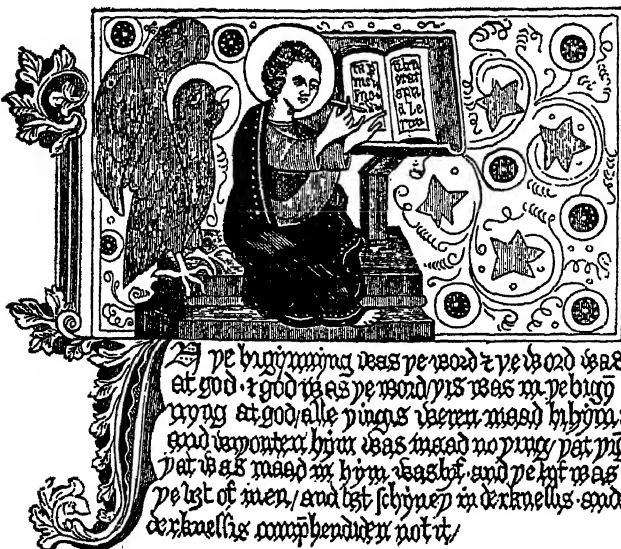 N ye bigynnyng was ye word ⁊ ye word was
at god · ⁊ god was ye word yis was in ye bigȳ
nyng at god / alle yingis weren maad bi hym :
and wiyouten hym was maad no ying / yat yīg
yat was maad in hym was lyf · and ye lyf was
ye liȝt of men / and liȝt schyney in derknessis · and
derknessis comp̄hendiden not it /